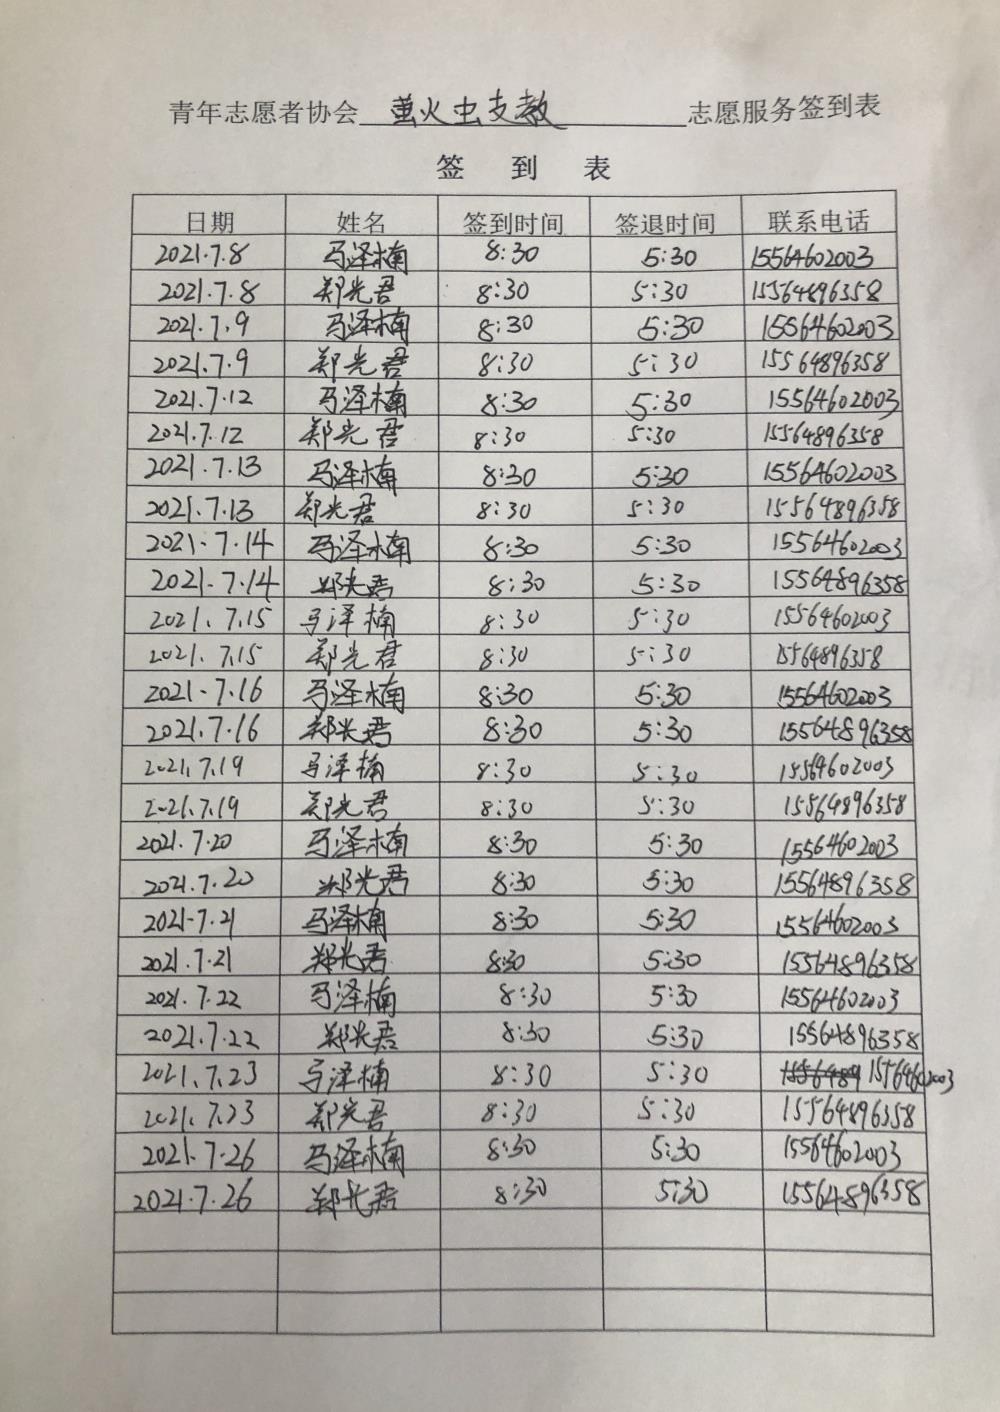 青年志愿者协会 萤火虫支教 志愿服务签到表
签 到 表
日期 姓名 签到时间 签退时间 联系电话
2021.7.8 马泽楠 8:30 5:30 15564602003
2021.7.8 郑光君 8:30 5:30 15564896358
2021.7.9 马泽楠 8:30 5:30 15564602003
2021.7.9 郑光君 8:30 5:30 15564896358
2021.7.12 马泽楠 8:30 5:30 15564602003
2021.7.12 郑光君 8:30 5:30 15564896358
2021.7.13 马泽楠 8:30 5:30 15564602003
2021.7.13 郑光君 8:30 5:30 15564896358
2021.7.14 马泽楠 8:30 5:30 15564602003
2021.7.14 郑光君 8:30 5:30 15564896358
2021.7.15 马泽楠 8:30 5:30 15564602003
2021.7.15 郑光君 8:30 5:30 15564896358
2021.7.16 马泽楠 8:30 5:30 15564602003
2021.7.16 郑光君 8:30 5:30 15564896358
2021.7.19 马泽楠 8:30 5:30 15564602003
2021.7.19 郑光君 8:30 5:30 15564896358
2021.7.20 马泽楠 8:30 5:30 15564602003
2021.7.20 郑光君 8:30 5:30 15564896358
2021.7.21 马泽楠 8:30 5:30 15564602003
2021.7.21 郑光君 8:30 5:30 15564896358
2021.7.22 马泽楠 8:30 5:30 15564602003
2021.7.22 郑光君 8:30 5:30 15564896358
2021.7.23 马泽楠 8:30 5:30 15564602003
2021.7.23 郑光君 8:30 5:30 15564896358
2021.7.26 马泽楠 8:30 5:30 15564602003
2021.7.26 郑光君 8:30 5:30 15564896358